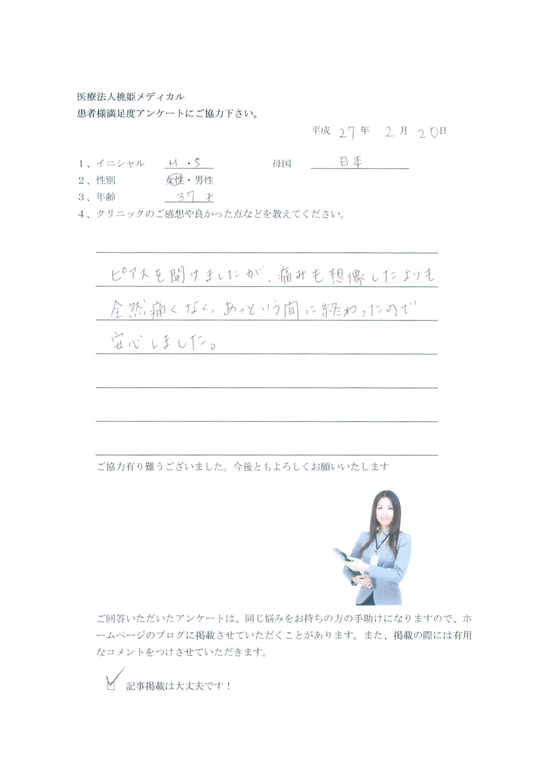 医療法人桃姫メディカル
患者様満足度アンケートにご協力下さい。
平成 27 年 2 月 20 日
1、イニシャル M・S 母国 日本
2、性別 女性・男性
3、年齢 37 才
4、クリニックのご感想や良かった点などを教えてください。
ピアスを開けましたが、痛みも想像したよりも
全然痛くなく、あっという間に終わったので
安心しました。
ご協力有り難うございました。今後ともよろしくお願いいたします
ご回答いただいたアンケートは、同じ悩みをお持ちの方の手助けになりますので、ホ
ームページのブログに掲載させていただくことがあります。また、掲載の際には有用
なコメントをつけさせていただきます。
記事掲載は大丈夫です！